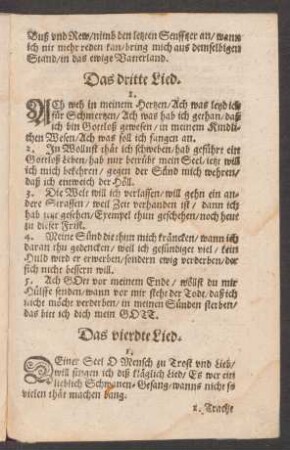 Buß vnd Rew/nimb den letzten Seufftzer an/wann
ich nit mehr reden kan/bring mich aus demselbigen
Stand/in das ewige Vatterland.
Das dritte Lied.
1.
ACh weh in meinem Hertzen/Ach was leyd ich
für Schmertzen/Ach was hab ich gethan/daß
ich bin Gottloß gewesen/in meinem Kindli-
chen Wesen/Ach was soll ich fangen an.
2. In Wollust thät ich schweben/hab geführt ein
Gottloß Leben/hab nur betrübt mein Seel/jetzt will
ich mich bekehren/gegen der Sünd mich wehren/
daß ich entweich der Höll.
3. Die Welt will ich verlassen/will gehn ein an-
dere Strassen/weil Zeit verhanden ist/dann ich
hab jetzt gesehen/Exempel thun geschehen/noch heut
zu dieser Frist.
4. Meine Sünd die thun mich kräncken/wann ich
daran thu gedencken/weil ich gesündiget viel/kein
Huld wird er erwerben/sondern ewig verderben/der
sich nicht bessern will.
5. Ach GOtt vor meinem Ende/wöllst du mir
Hülffe senden/wann vor mir steht der Todt/daß ich
nicht möcht verderben/in meinen Sünden sterben/
das bitt ich dich mein GOTT.
Das vierdte Lied.
1.
DEiner Seel O Mensch zu Trost vnd Lieb/
will singen ich diß kläglich Lied/Es wer ein
lieblich Schwanen-Gesang/wanns nicht so
vielen thät machen bang.
2. Trachte